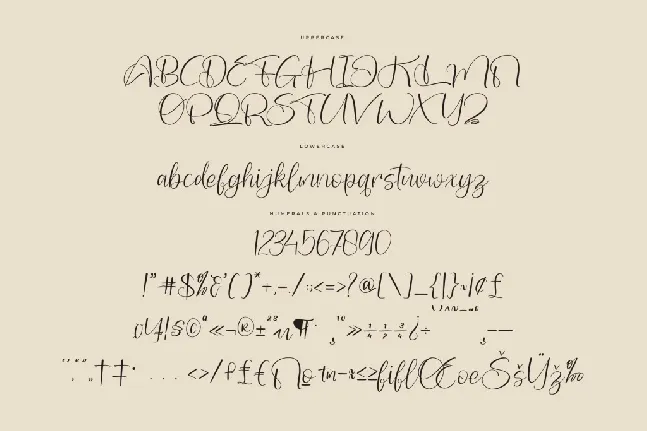 UPPERCASE
ABCDEFGHIJKLMN
OPQRSTUVWXYZ
LOWERCASE
abcdefghijklmnopqrstuvwxyz
NUMERALS & PUNCTUATION
1234567890
!"#$%&'()*+,-./:;<=>?@[\]_{|}~¡¢£
¤¥¦§©ª«¬®±²³µ¶·¸¹º»¼½¾¿÷
†‡•...‹›⁄
fiflŒœŠšŸž‰